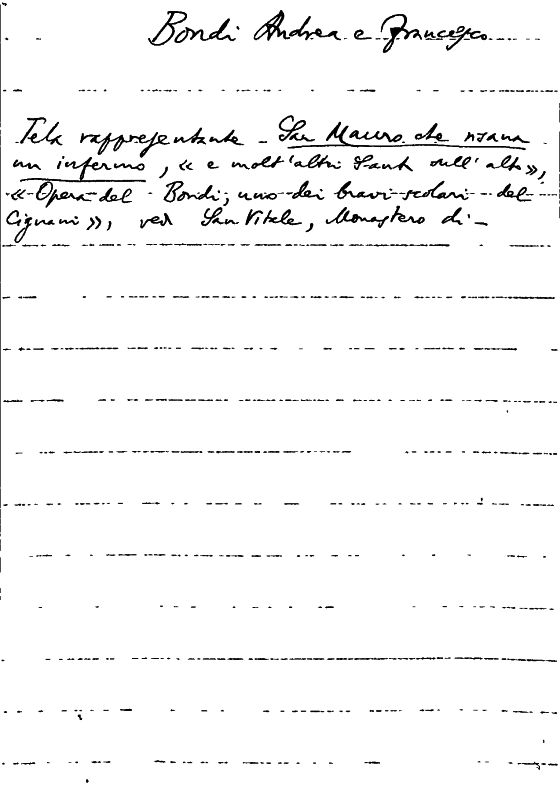 Bondi Andrea e Francesco
Tela rappresentante - San Mauro che risana
un infermo, « e molt'altri Santi sull'alto»,
« Opera del Bondi, uno dei bravi scolari del
Cignani », vedi San Vitale, Monastero di -